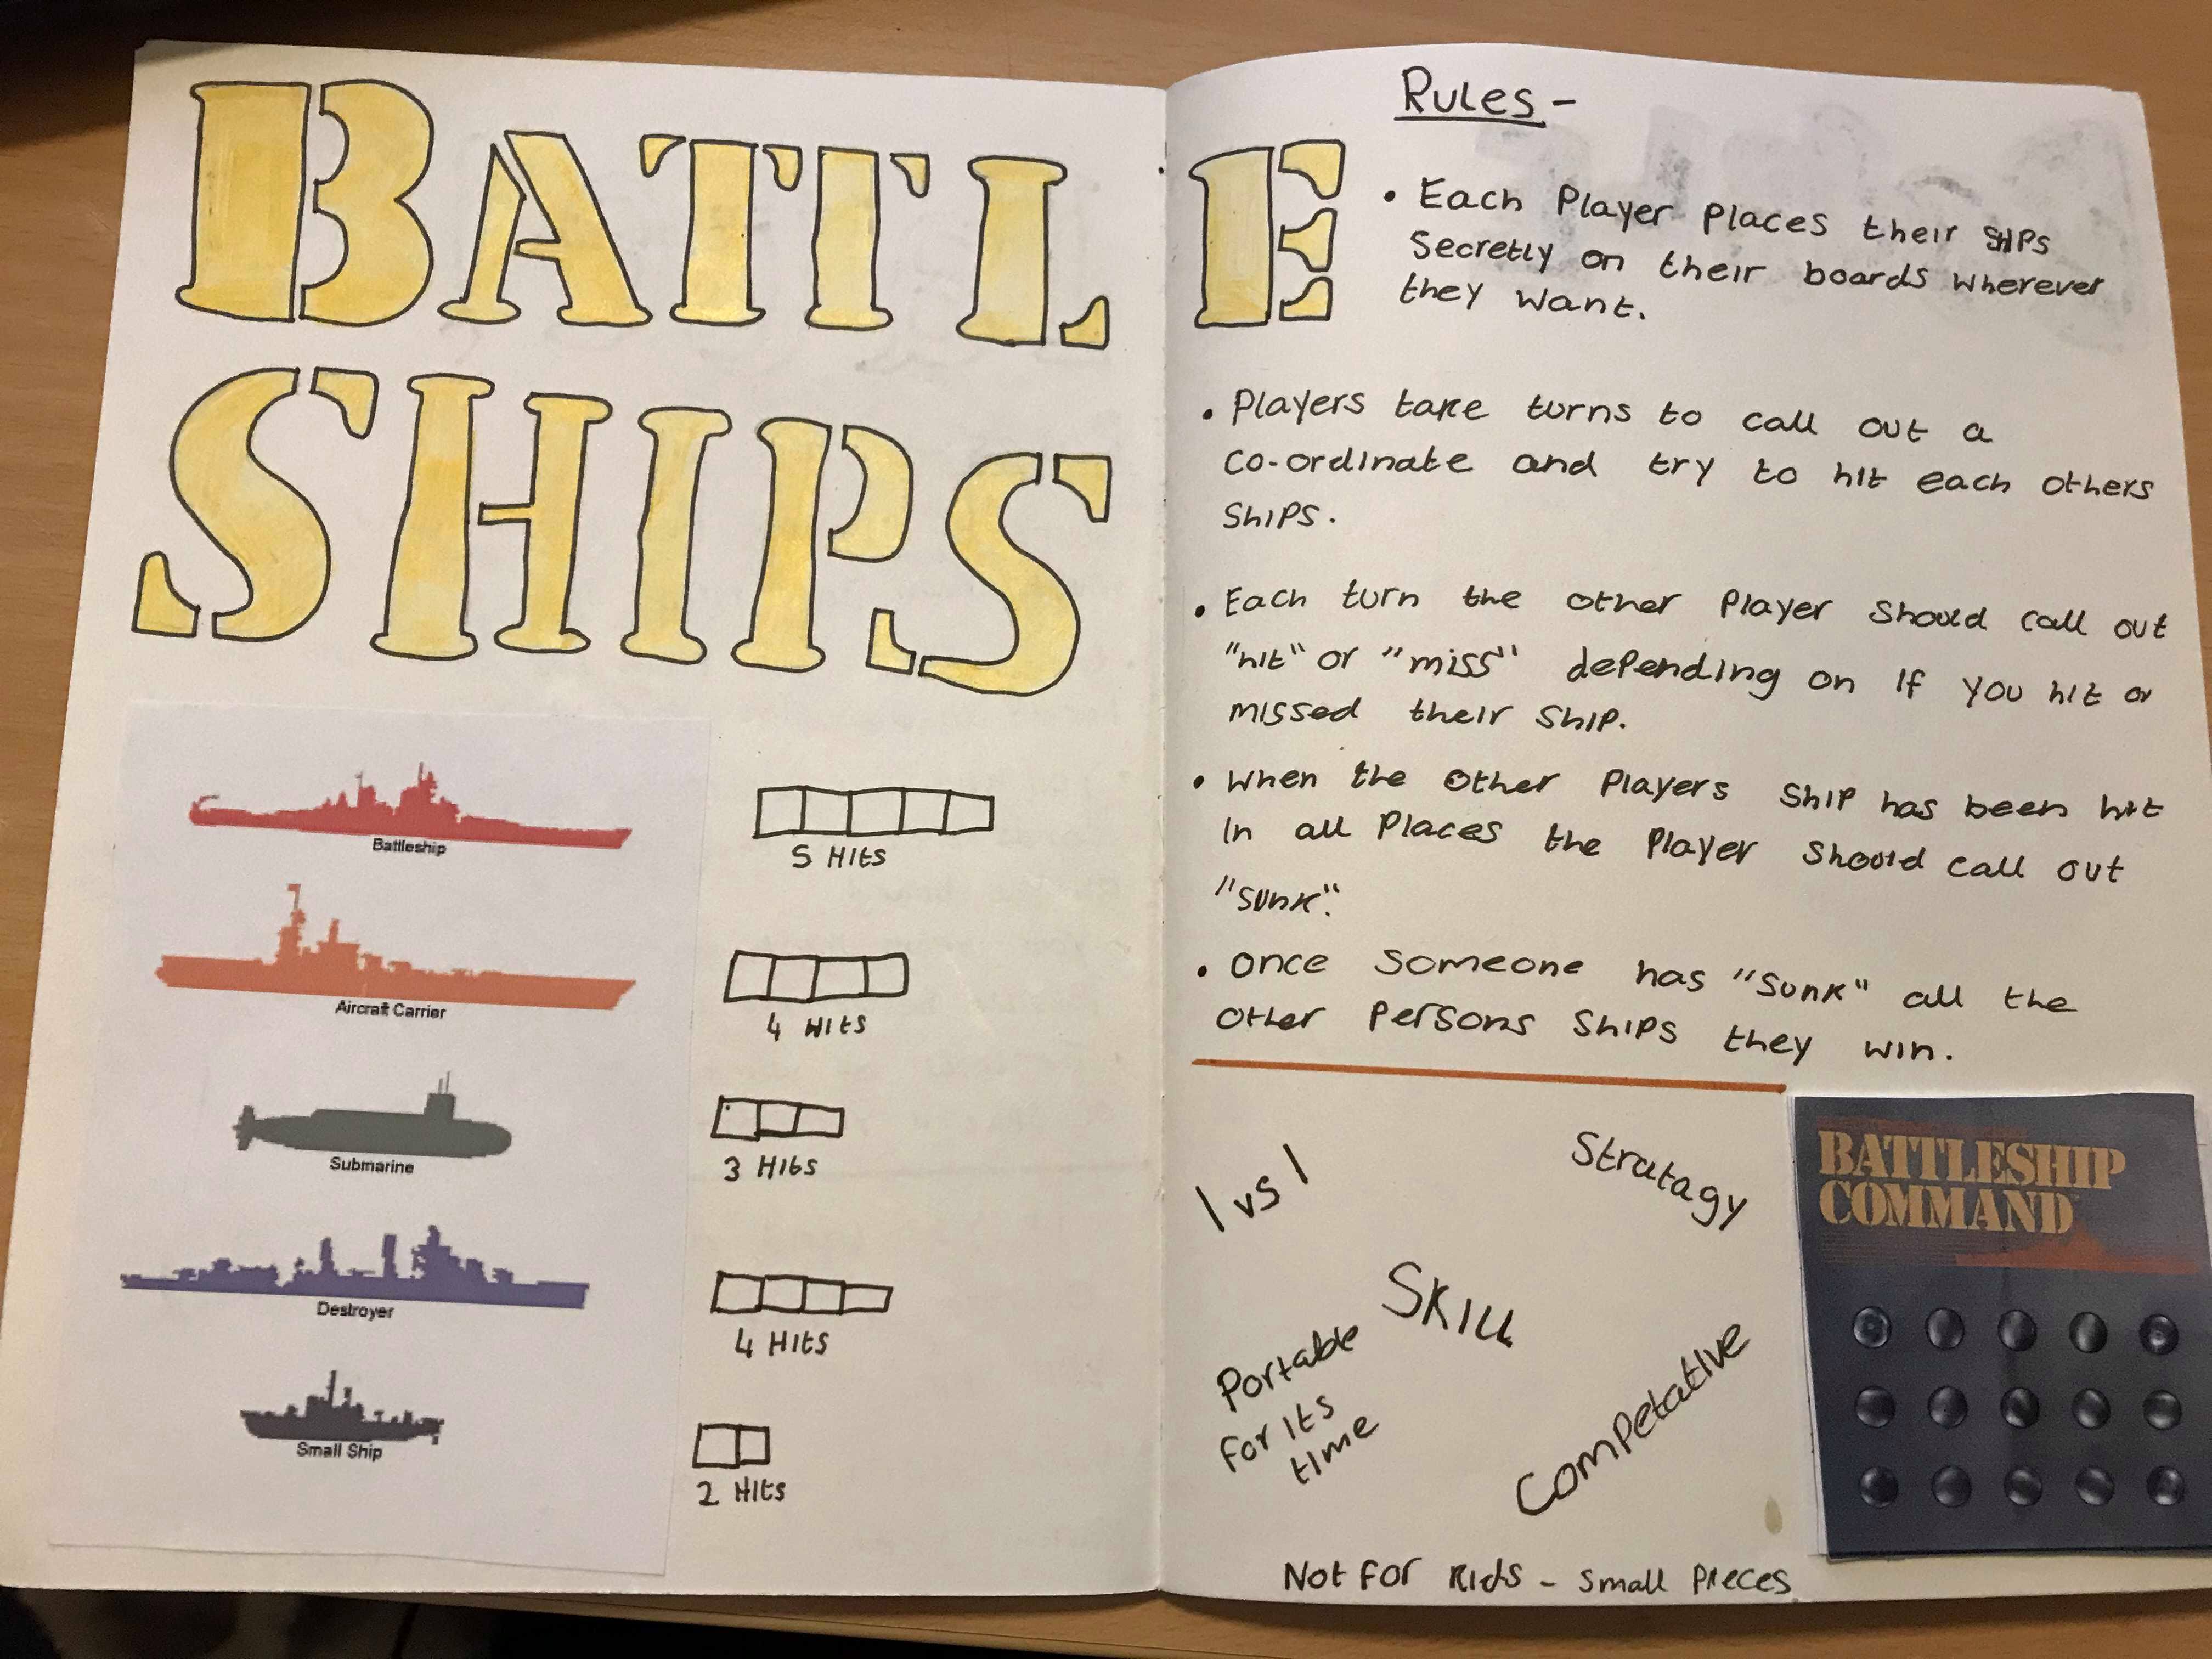 BATTLE
SHIPS
Battleship
5 Hits
Aircraft Carrier
4 Hits
Submarine
3 Hits
Destroyer
4 Hits
Small Ship
2 Hits
Rules -
• Each Player Places their Ships
Secretly on their boards wherever
they want.
• Players take turns to call out a
co-ordinate and try to hit each others
Ships.
• Each turn the other Player should call out
"hit" or "miss" depending on if you hit or
missed their ship.
• When the other Players Ship has been hit
in all Places the Player should call out
"sunk".
• Once someone has "sunk" all the
other Persons Ships they win.
1 vs 1
Stratagy
Skill
Portable
for its
time
Competative
Not for kids - small pieces
BATTLESHIP
COMMAND